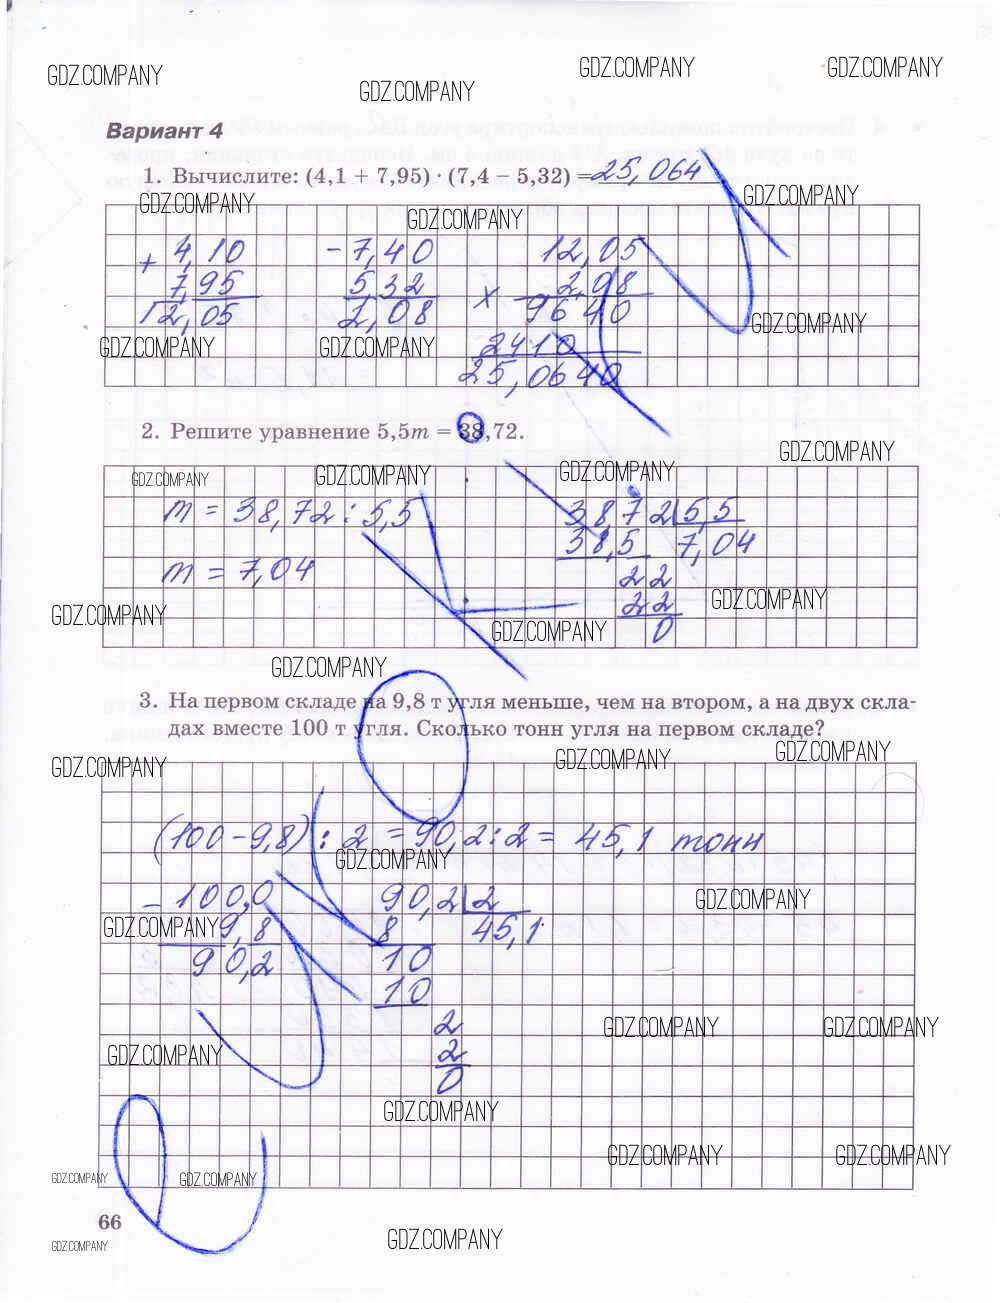 GDZ.COMPANY GDZ.COMPANY
GDZ.COMPANY GDZ.COMPANY
Вариант 4
1. Вычислите: (4,1 + 7,95) · (7,4 – 5,32) = 25,064
GDZ.COMPANY GDZ.COMPANY GDZ.COMPANY
+ 4,10 – 7,40 12,05
7,95 5,32 × 2,08
12,05 2,08 9640
GDZ.COMPANY
GDZ.COMPANY GDZ.COMPANY 2410
25,0640
2. Решите уравнение 5,5m = 38,72.
GDZ.COMPANY
GDZ.COMPANY GDZ.COMPANY GDZ.COMPANY
m = 38,72 : 5,5 38,72 5,5
38,5 7,04
m = 7,04 22
22
GDZ.COMPANY GDZ.COMPANY
GDZ.COMPANY 0
GDZ.COMPANY
3. На первом складе на 9,8 т угля меньше, чем на втором, а на двух скла-
дах вместе 100 т угля. Сколько тонн угля на первом складе?
GDZ.COMPANY GDZ.COMPANY GDZ.COMPANY
(100 – 9,8) : 2 = 90,2 : 2 = 45,1 тонн
GDZ.COMPANY
– 100,0 90,2 2
GDZ.COMPANY
GDZ.COMPANY 9,8 8 45,1
90,2 10
10
2
GDZ.COMPANY GDZ.COMPANY
GDZ.COMPANY 2
0
GDZ.COMPANY
GDZ.COMPANY GDZ.COMPANY
GDZ.COMPANY GDZ.COMPANY
66
GDZ.COMPANY GDZ.COMPANY